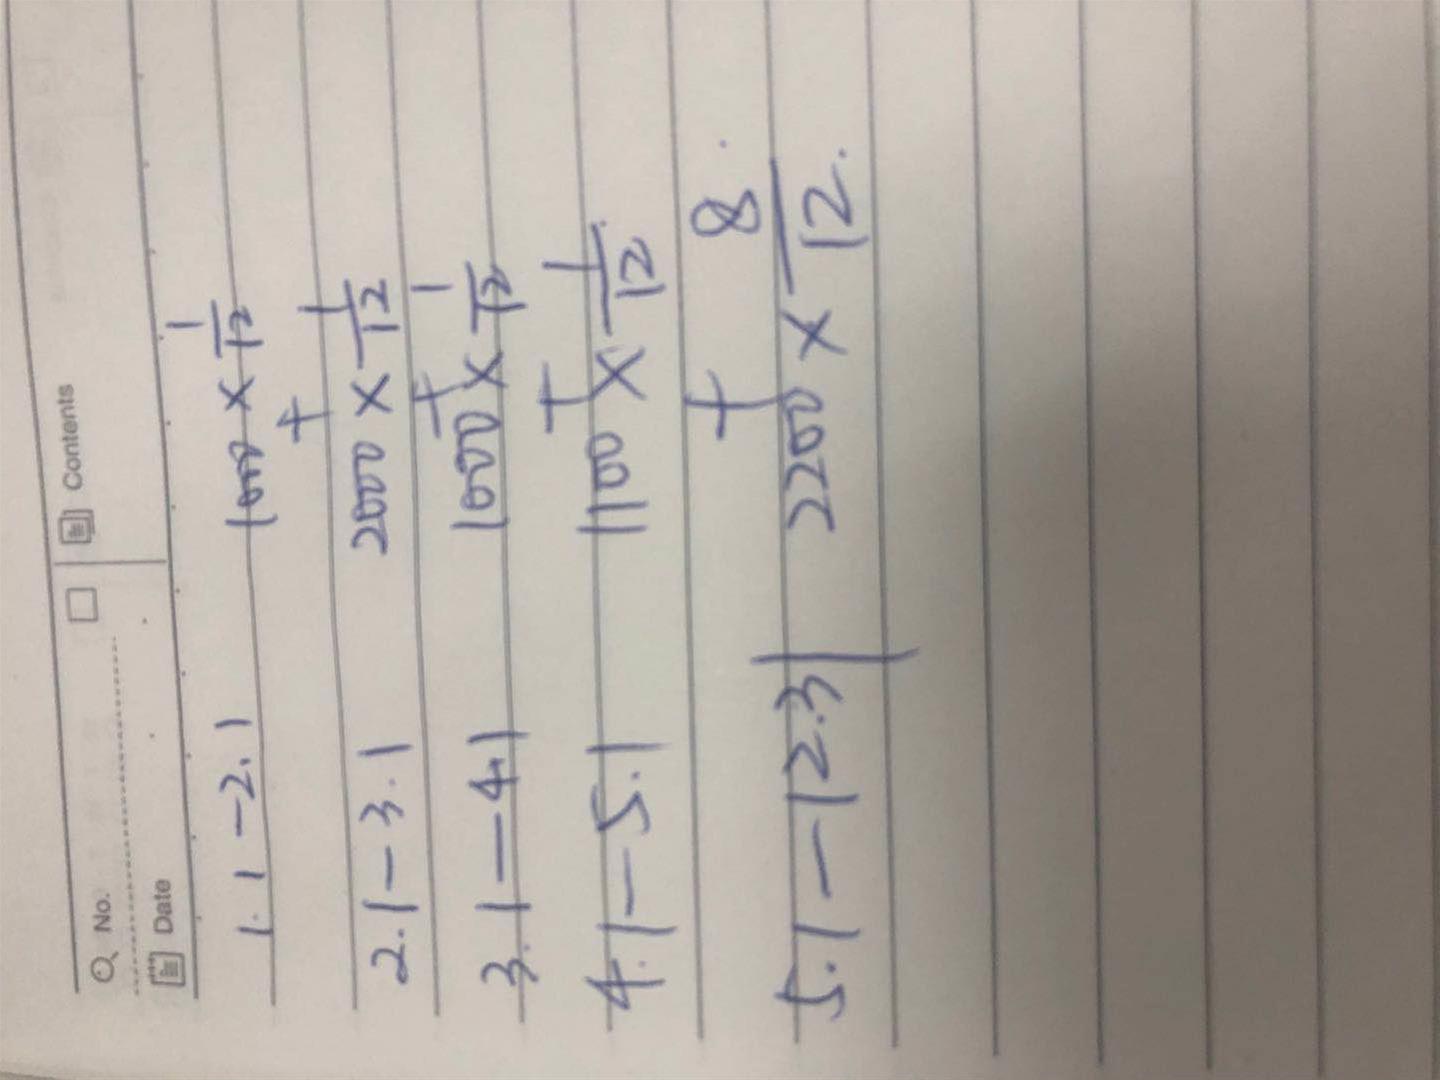 No. Contents
Date
1.1-2.1 1000 × 1/12
+
2.1-3.1 2000 × 1/12
+
3.1-4.1 1000 × 1/12
+
4.1-5.1 1100 × 1/12
+
5.1-12.31 2200 × 8/12.